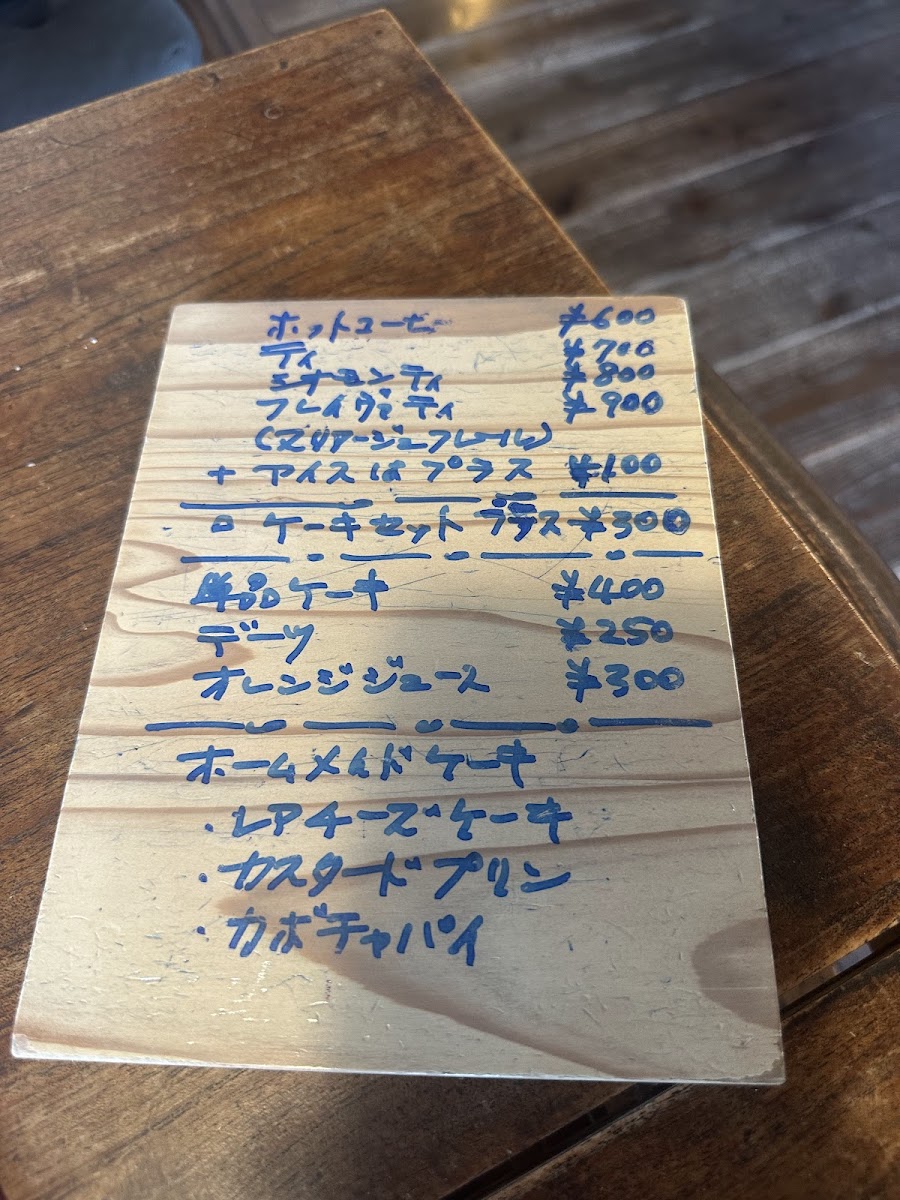 ホットコーヒー ¥600
ティ ¥700
シナモンティ ¥800
フレイヴァティ ¥900
(マリアージュフレール)
+ アイスはプラス ¥100
ケーキセット プラス ¥300
単品ケーキ ¥400
デーツ ¥250
オレンジジュース ¥300
ホームメイドケーキ
・レアチーズケーキ
・カスタードプリン
・カボチャパイ